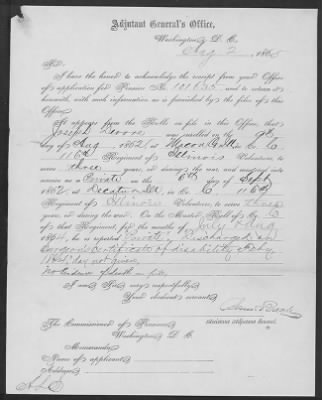 Adjutant General's Office,
Washington D. C.
Aug 2, 1865
Sir:
I have the honor to acknowledge the receipt from your Office
of application for Pension No. and to return it
herewith, with such information as is furnished by the files of this
Office.
It appears from the Rolls on file in this Office, that
Joseph was enrolled on the 9th
day of Aug, 1862, at Macon in Co. C,
116th Regiment of Illinois Volunteers, to
serve three years, or during the war, and mustered into
service as a Private on the 6th day of Sept,
1862, at Decatur Ills, in Co. C, 116th
Regiment of Illinois Volunteers, to serve three
years, or during the war. On the Muster Roll of Co. C
of that Regiment, for the months of July & Aug,
1864, he is reported Private Discharged on
Surgeons certificate of disability
day not given
No Evidence of death on file.
I am, Sir, very respectfully,
Your obedient servant,
Assistant Adjutant General.
The Commissioner of Pensions,
Washington D. C.
Memoranda:
Name of applicant
Address